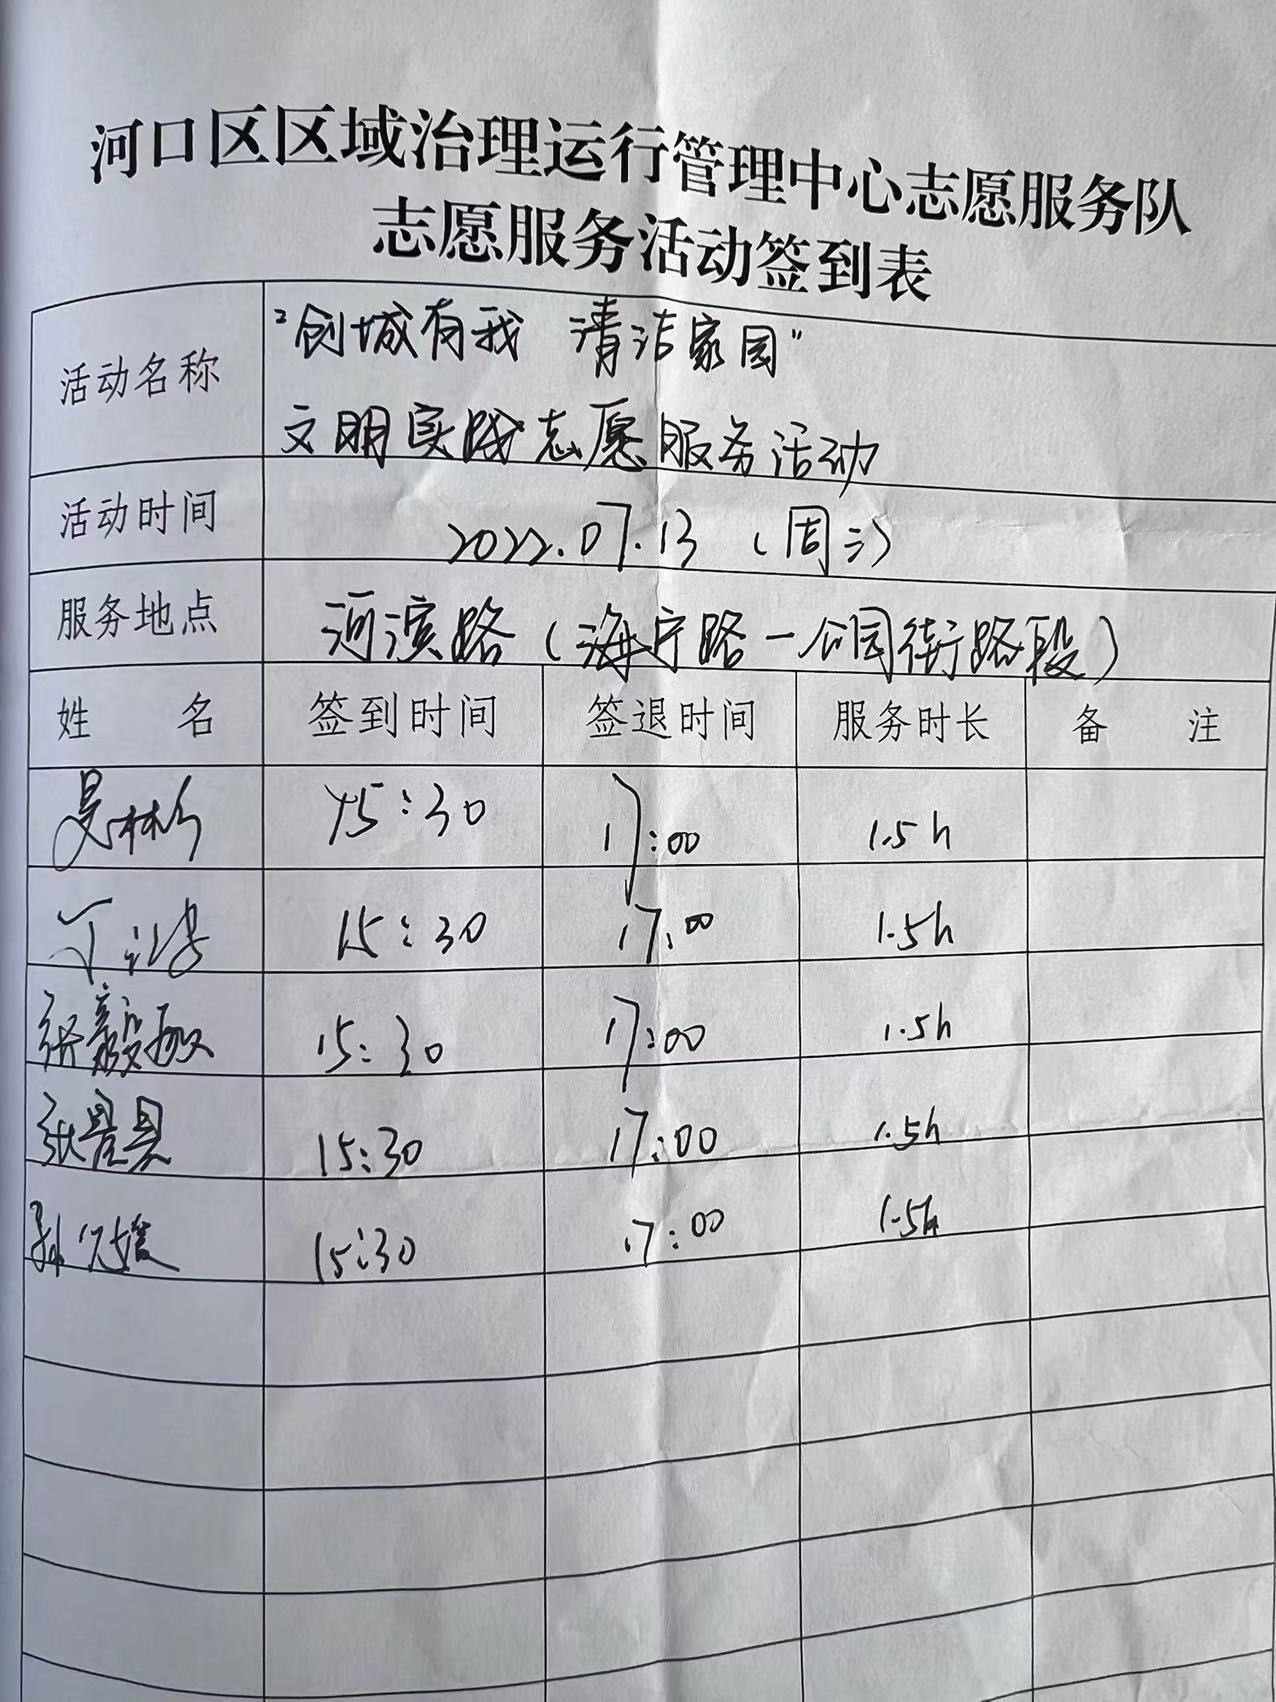 河口区区域治理运行管理中心志愿服务队
志愿服务活动签到表
活动名称 "创城有我 清洁家园"
文明实践志愿服务活动
活动时间 2022.07.13（周三）
服务地点 河滨路（海宁路-公园街路段）
姓 名 签到时间 签退时间 服务时长 备 注
15:30 17:00 1.5h
15:30 17:00 1.5h
张毅敏 15:30 17:00 1.5h
15:30 17:00 1.5h
孙 15:30 17:00 1.5h